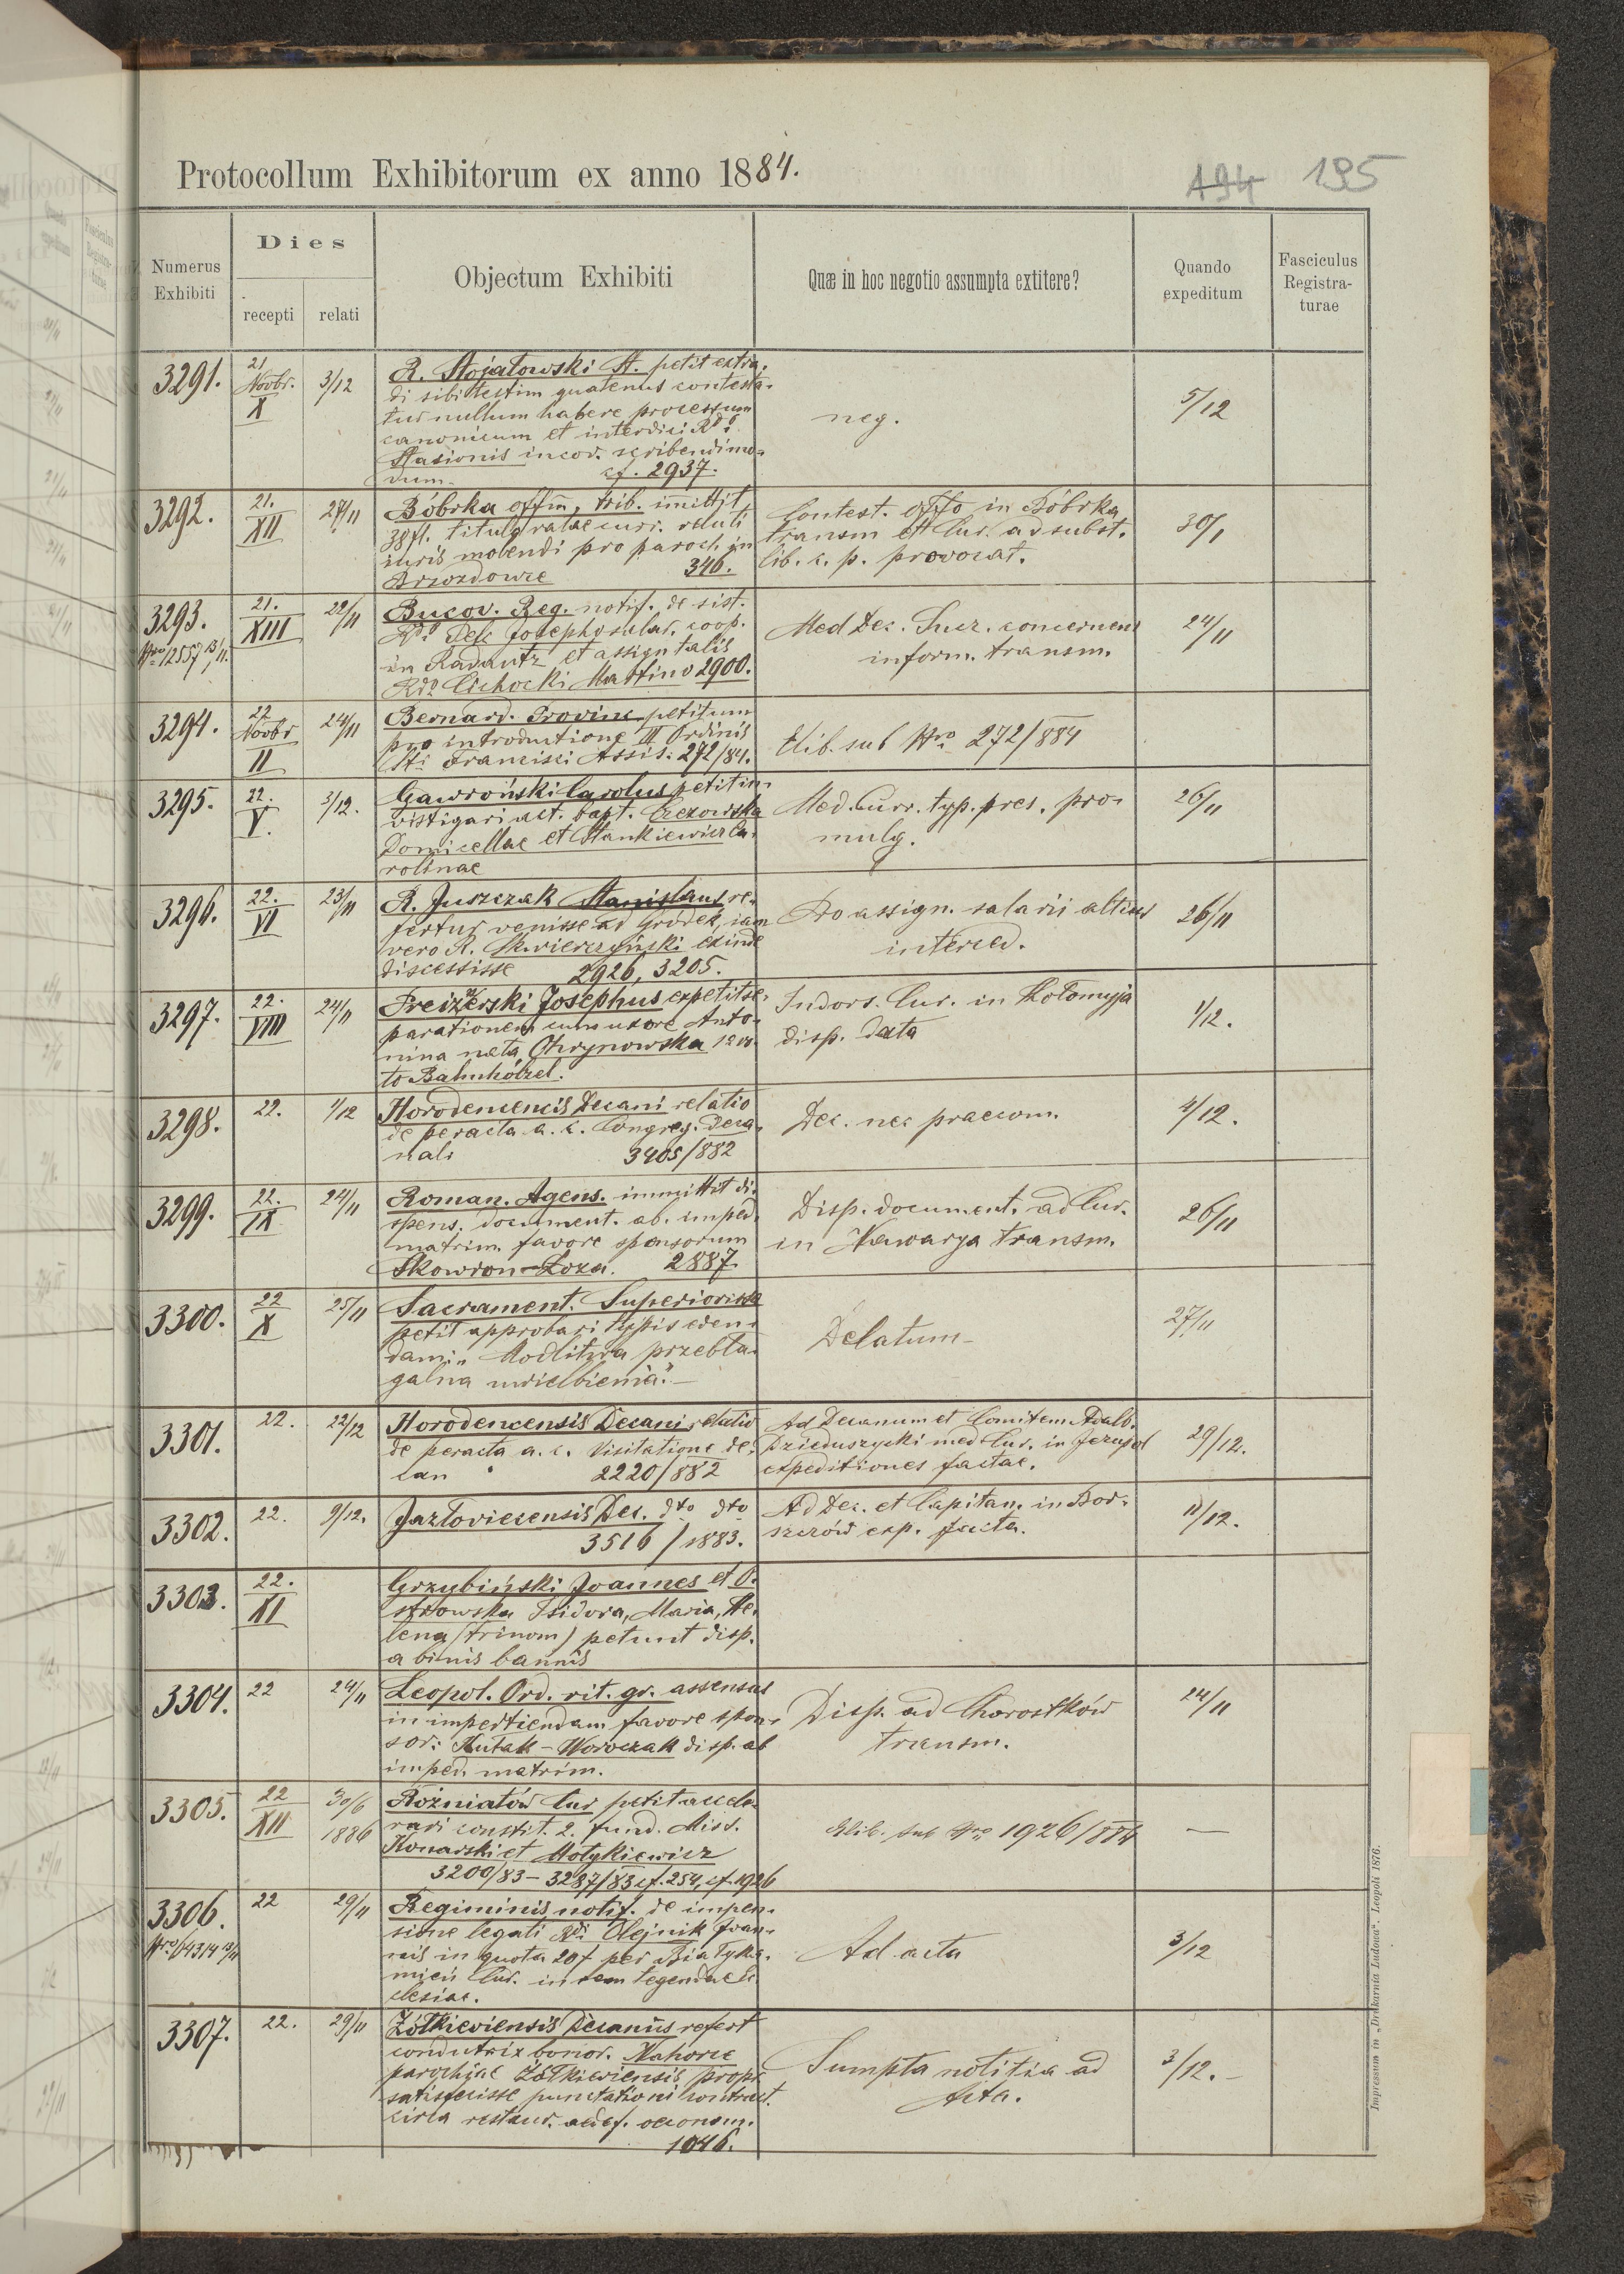 Protocollum Exhibitorum ex anno 1884.
194 195
Numerus Exhibiti
Dies
recepti relati
Objectum Exhibiti
Quæ in hoc negotio assumpta extitere?
Quando expeditum
Fasciculus Registra-
turae
3291. 21 Novbr. X 3/12
R. Stojałowski St. petit extra-
di sibi testim quatenus contesta-
tur nullum habere processum
canonicum et interdici Rdo
Stasionis incor. scribendi mo-
dum. cf. 2937.
neg.
5/12
3292. 21. XII 27/11
Bóbrka offm, trib. immittit
38 fl. titulo ratae curr. reluti
iuris molendi pro paroch. in
Brzozdowce 346.
Contest. offo in Bóbrka
transm et Cur. ad subst.
lib. c. p. provocat.
30/1
3293. 21. XIII 22/11
Nro 12557 13/11.
Bucov. Reg. notif. de sist.
Rdo Josepho salar. coop.
in Radautz et assign talis
Rdo Cichocki Martino 2900.
Med Dec. Sucz. concernens
inform. transm.
24/11
3294. 22 Novbr II 24/11
Bernard. Provinc petitum
pro introductione III Ordinis
Sti Francisci Assis. 272/84.
Elib. sub Nro 272/884
3295. 22. V. 3/12.
Gawroński Carolus petit in-
vistigari act. bapt. Czezowska
Domicellae et Stankiewicz Ca-
rolinae
Med. Curr. typ. pres. pro-
mulg.
26/11
3296. 22. VI 23/11
R. Juszczak Stanislaus re-
fertur venisse ad Gródek, iam
vero R. Skwierczyński exinde
discessisse 2926, 3205.
Pro assign. salarii altius
interced.
26/11
3297. 22. VIII 24/11
Preizerski Josephus expetit se-
parationem cum uxore Anto-
nina nata Chrynowska 1o vo-
to Bahnhölzel.
Indors. Cur. in Kołomyja
disp. data
1/12.
3298. 22. 1/12
Horodencencis Decani relatio
de peracta a. c. Congreg. Deca-
nali 3405/882
Dec. nec praecom.
4/12.
3299. 22. IX 24/11
Roman. Agens. immittit di-
spens. document. ab. imped.
matrim. favore sponsorum
Skowron-Łoza. 2887
Disp. document. ad Cur.
in Nawarya transm.
26/11
3300. 22 X 25/11
Sacrament. Superiorissa
petit approbari typis eden-
dam „Modlitwa przebła-
galna uwielbienia."—
Delatum—
27/11
3301. 22. 22/12
Horodencensis Decani relatio
de peracta a. c. Visitatione de-
can 2220/882
Ad Decanum et Comitem Adalb.
Dzieduszycki med Cur. in Jezupol
expeditiones factae.
29/12.
3302. 22. 9/12.
Jazłoviecensis Dec. dto dto
3516/1883.
Ad Dec. et Capitan. in Bor-
szczów exp. facta.
11/12.
3303. 22. XI
Grzybiński Joannes et O-
strowska Isidora, Maria, He-
lena (trinom) petunt disp.
a binis bannis
3304. 22 24/11
Leopol. Ord. rit. gr. assensus
in impertiendam favore spon-
sor: Hutak-Woroczak disp. ab
imped. matrim.
Disp. ad Chorostków
transm.
24/11
3305. 22 XII 30/6 1886
Rożniatów Cur petit accele-
rari constit. 2. fund. Miss.
Konarski et Motykiewicz
3200/83-3287/83 cf. 254, cf. 1926
Elib. sub Nro 1926/884
—
3306. 22 29/11
Nro 64314 13/11
Regiminis notif. de impen-
sione legati Rdi Olejnik Joan-
nis in quota 20f per Białyka-
mień Cur. in rem tegendae ec-
clesiae.
Ad acta
3/12
3307. 22. 29/11
Żółkieviensis Decanus refert
conductrix bonor. Nahorce
parochiae Żółkieviensis propr
satisfecisse punctationi contract.
circa restaur. aedif. oeconom.
1046.
Sumpta notitia ad
Acta.
3/12.—
Impressum in „Drukarnia Ludowa". Leopoli 1876.